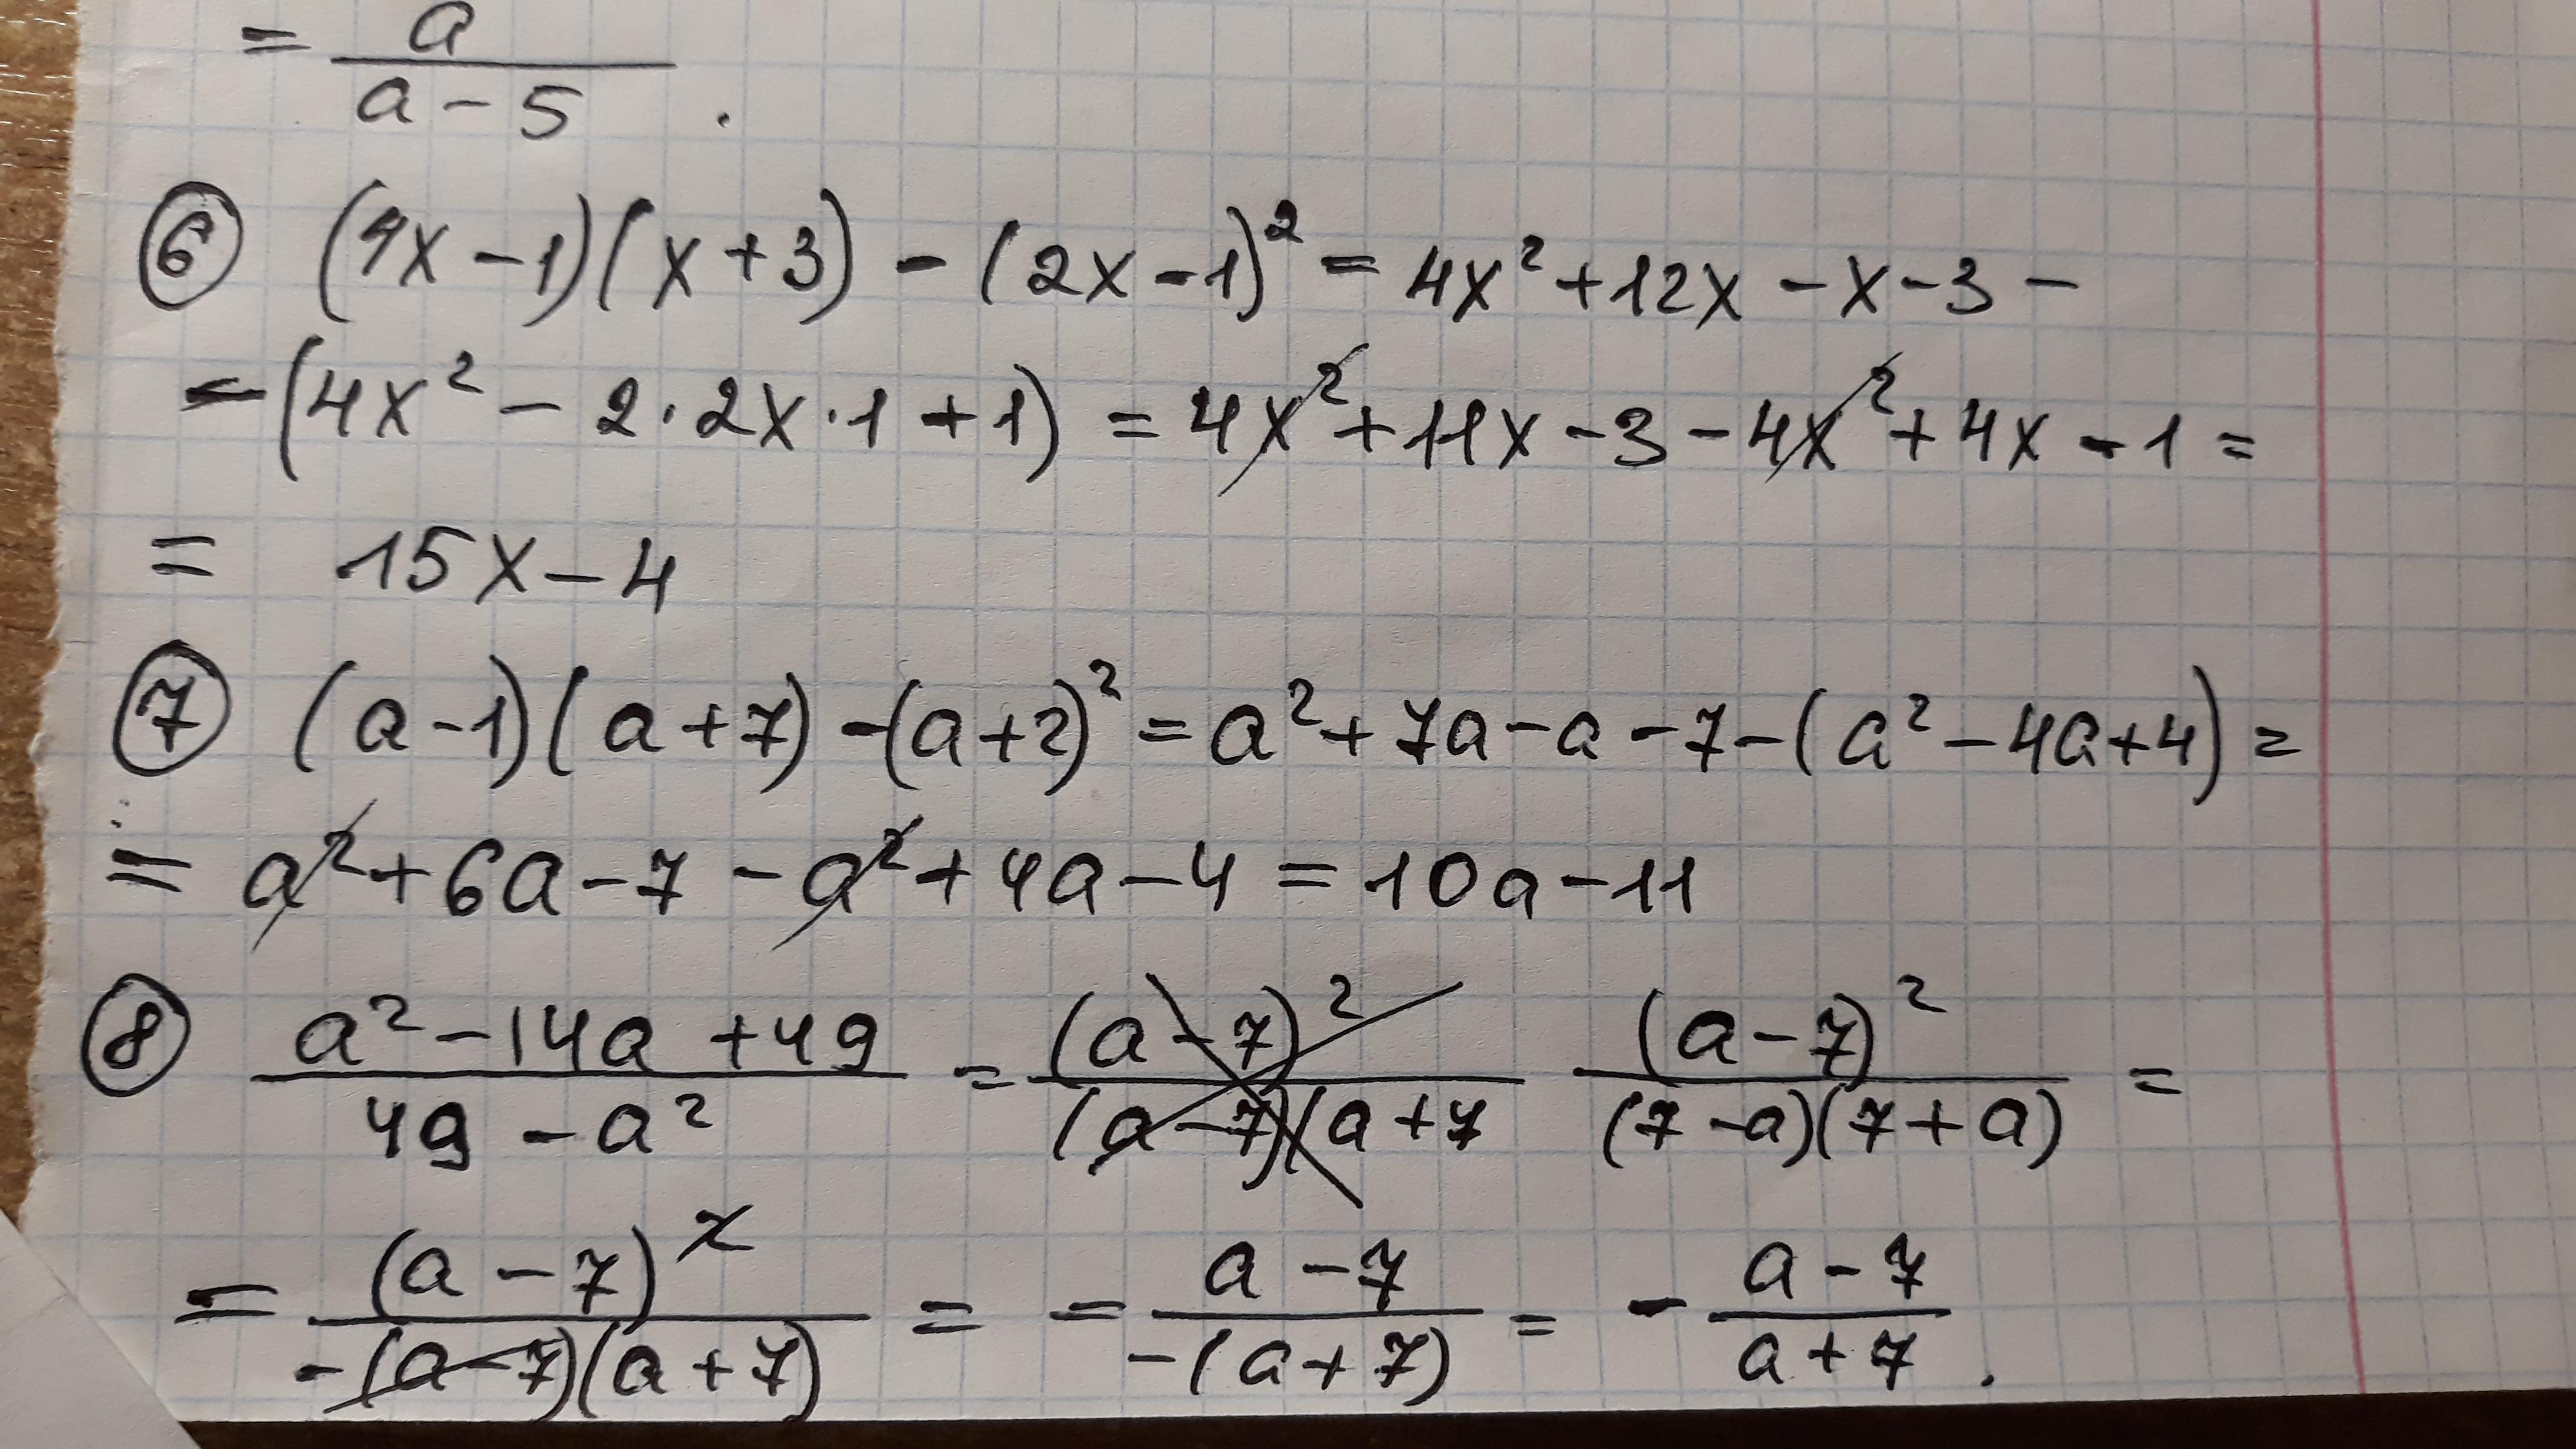 = a/(a - 5) .
⑥ (4x - 1)(x + 3) - (2x - 1)² = 4x² + 12x - x - 3 -
- (4x² - 2 · 2x · 1 + 1) = 4x² + 11x - 3 - 4x² + 4x - 1 =
= 15x - 4
⑦ (a - 1)(a + 7) - (a + 2)² = a² + 7a - a - 7 - (a² - 4a + 4) =
= a² + 6a - 7 - a² + 4a - 4 = 10a - 11
⑧ (a² - 14a + 49)/(49 - a²) = (a - 7)²/((a - 7)(a + 7) (a - 7)²/((7 - a)(7 + a)) =
= (a - 7)²/(-(a - 7)(a + 7)) = - (a - 7)/(-(a + 7)) = - (a - 7)/(a + 7) .